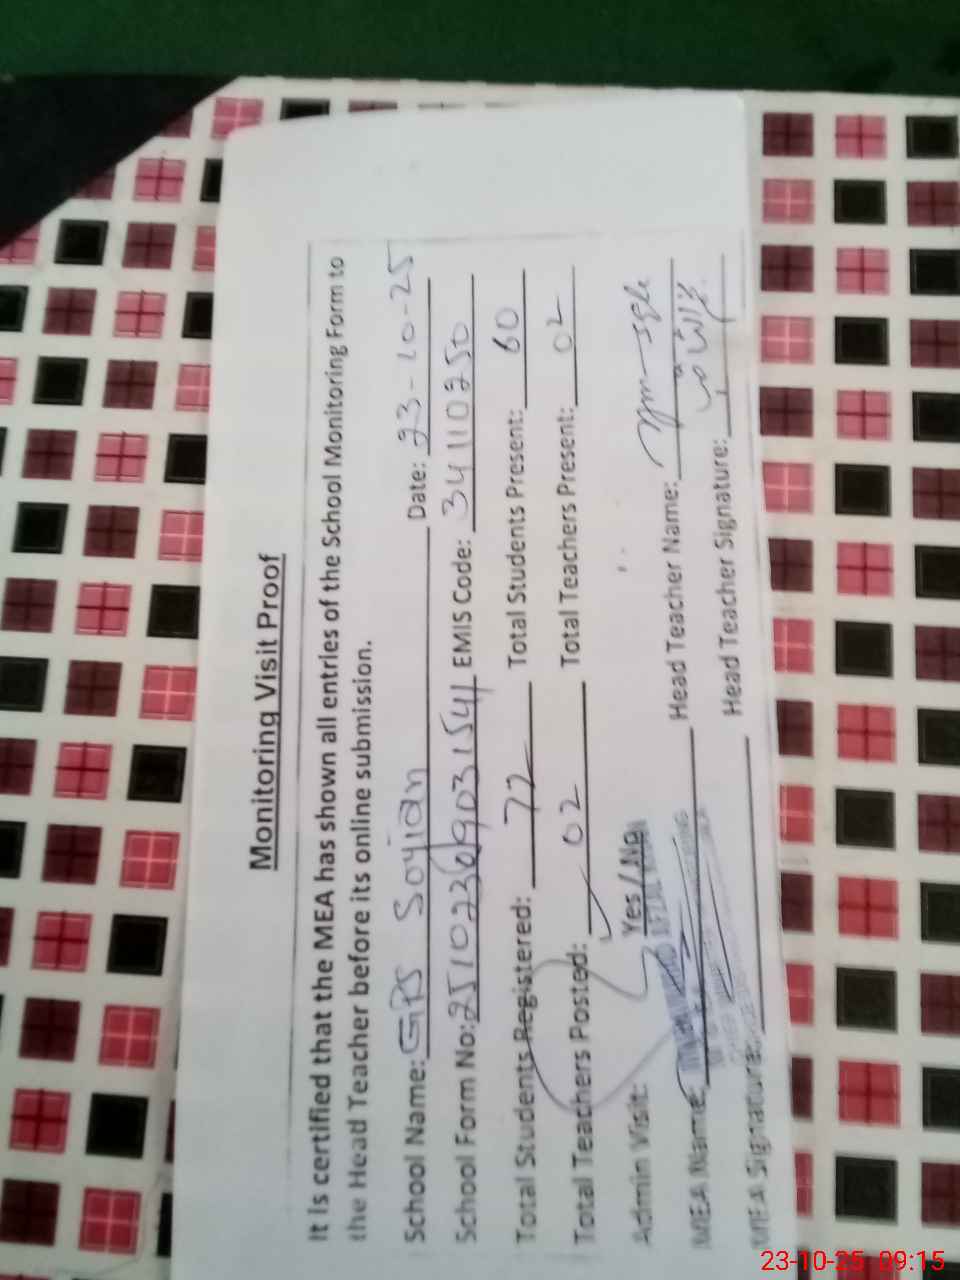 Monitoring Visit Proof
It is certified that the MEA has shown all entries of the School Monitoring Form to
the Head Teacher before its online submission.
School Name: GPS Soyian Date: 23-10-25
School Form No: EMIS Code: 34110250
Total Students Registered: 72 Total Students Present: 60
Total Teachers Posted: 02 Total Teachers Present: 02
Admin Visit: Yes / No
MEA Name: Head Teacher Name:
MEA Signature: Head Teacher Signature:
23-10-25 09:15